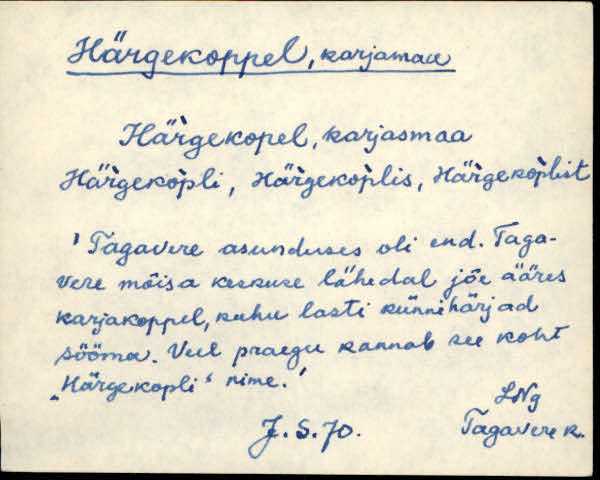 Härgekoppel, karjamaa
Hä̀rgekopel, karjasmaa
Hä̀rgekop̀li, Hä̀rgekop̀lis, Hä̀rgekop̀list
' Tagavere asunduses oli end. Taga-
vere mõisa keskuse lähedal jõe ääres
karjakoppel, kuhu lasti künnihärjad
sööma. Veel praegu kannab see koht
„Härgekopli“ nime.'
J. S. 70.
LNg
Tagavere k.